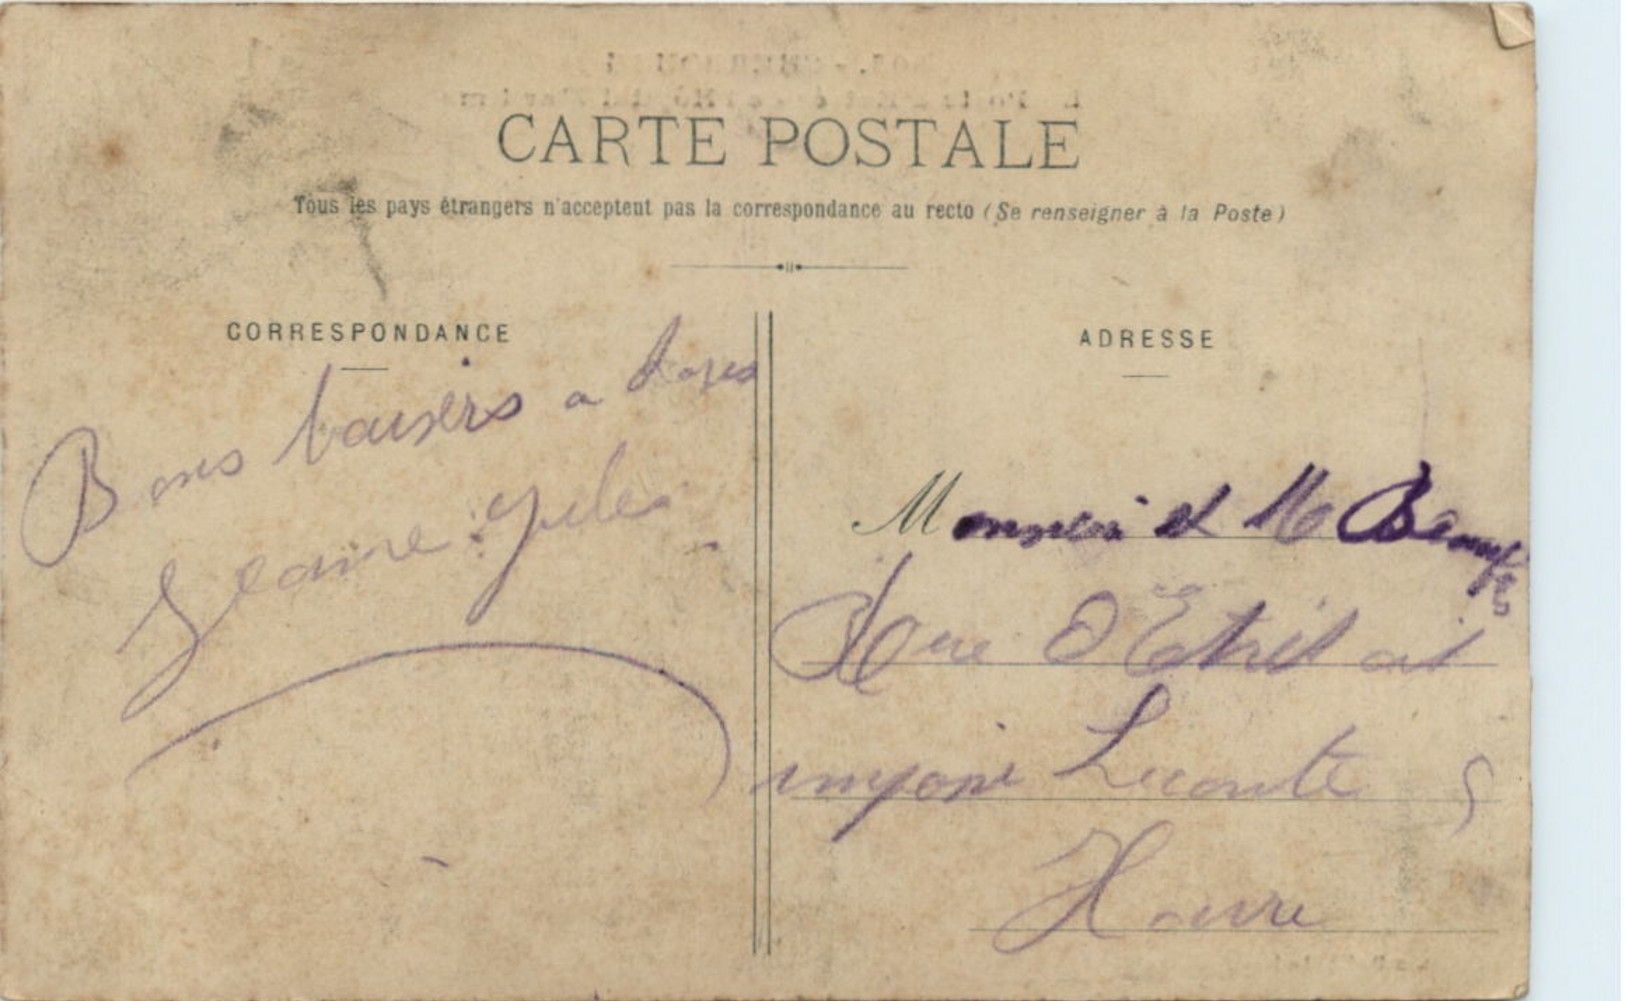 CARTE POSTALE
Tous les pays étrangers n'acceptent pas la correspondance au recto (Se renseigner à la Poste)
CORRESPONDANCE
Bons baisers a
Jeanne Jules
ADRESSE
Monsieur et M
Rue D Etretat
Leconte 5
Havre